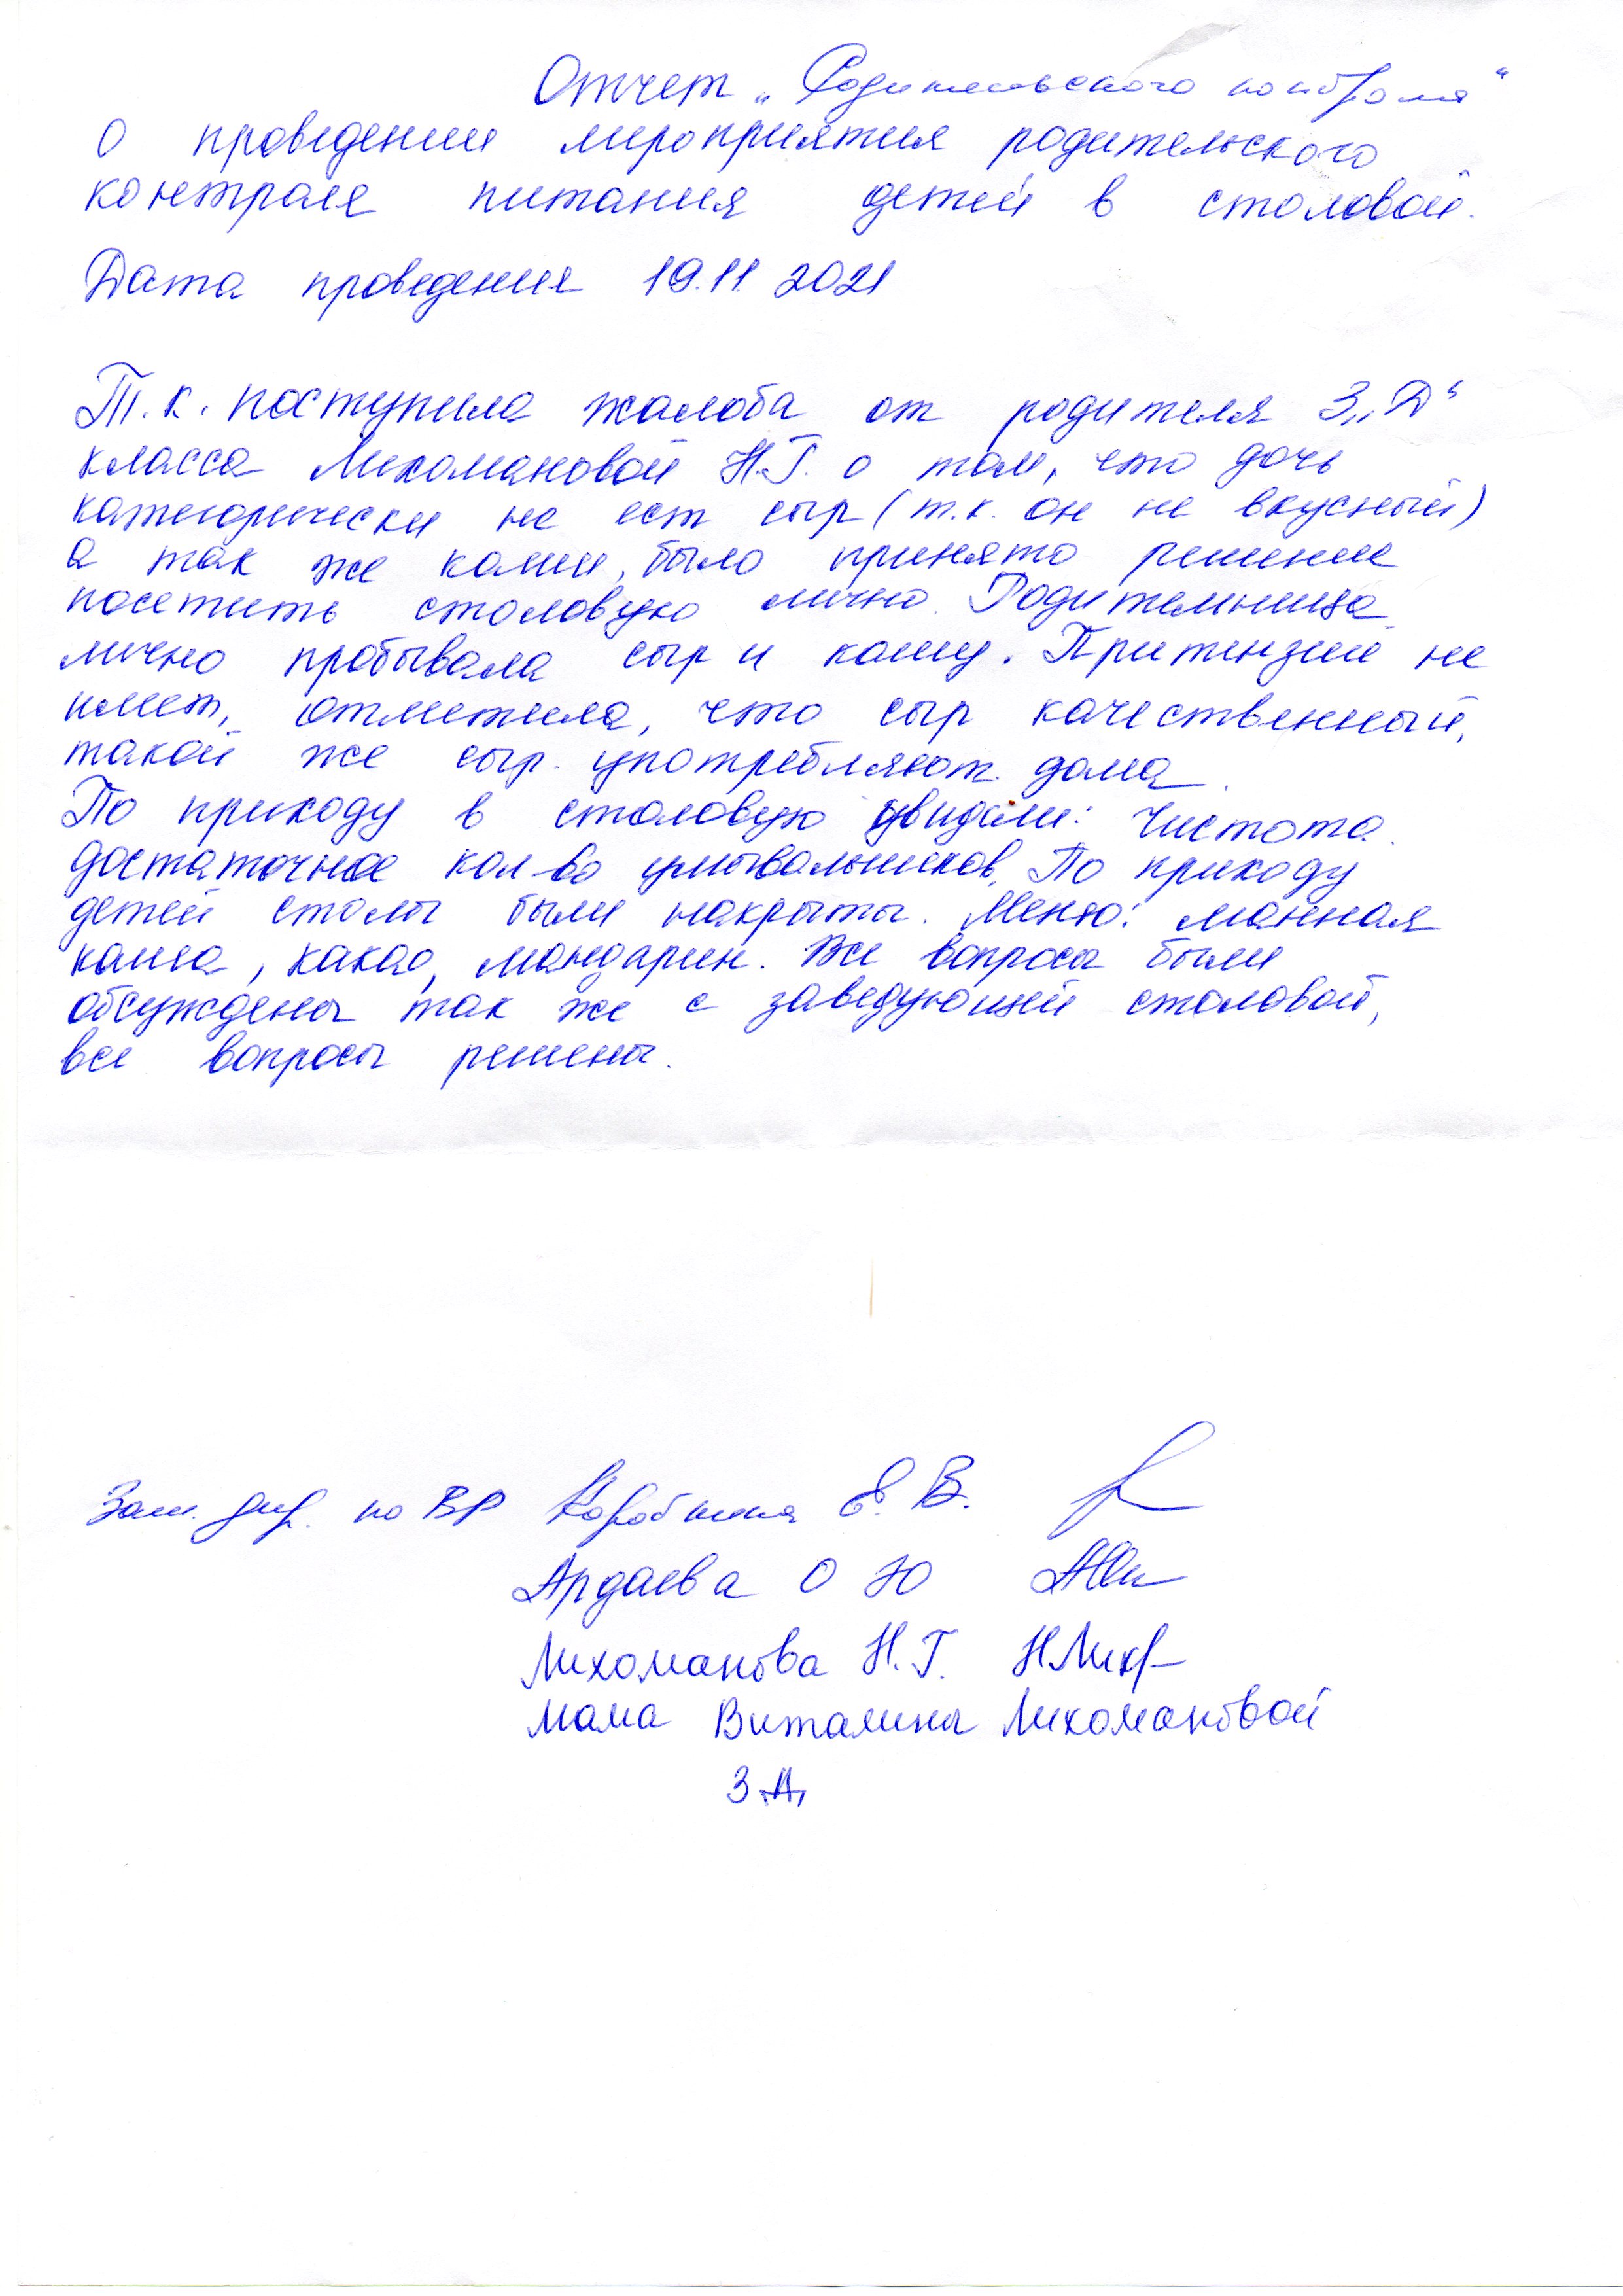 Отчет „Родительского контроля“
О проведении мероприятия родительского
контроля питания детей в столовой.
Дата проведения 19.11.2021
Т.к. поступила жалоба от родителя 3„Д“
класса Лихомановой Н.Г. о том, что дочь
категорически не ест сыр (т.к. он не вкусный)
а так же каши, было принято решение
посетить столовую лично. Родительница
лично пробывала сыр и кашу. Притензий не
имеет, отметила, что сыр качественный,
такой же сыр употребляют дома.
По приходу в столовую увидели: Чистота.
достаточное кол-во умывальников. По приходу
детей столы были накрыты. Меню: манная
каша, какао, мандарин. Все вопросы были
обсуждены так же с заведующей столовой,
все вопросы решены.
Зам. дир. по ВР Коробкина Е.В.
Ардаева О Ю
Лихоманова Н.Г. НЛих
мама Виталины Лихомановой
3 „Д„